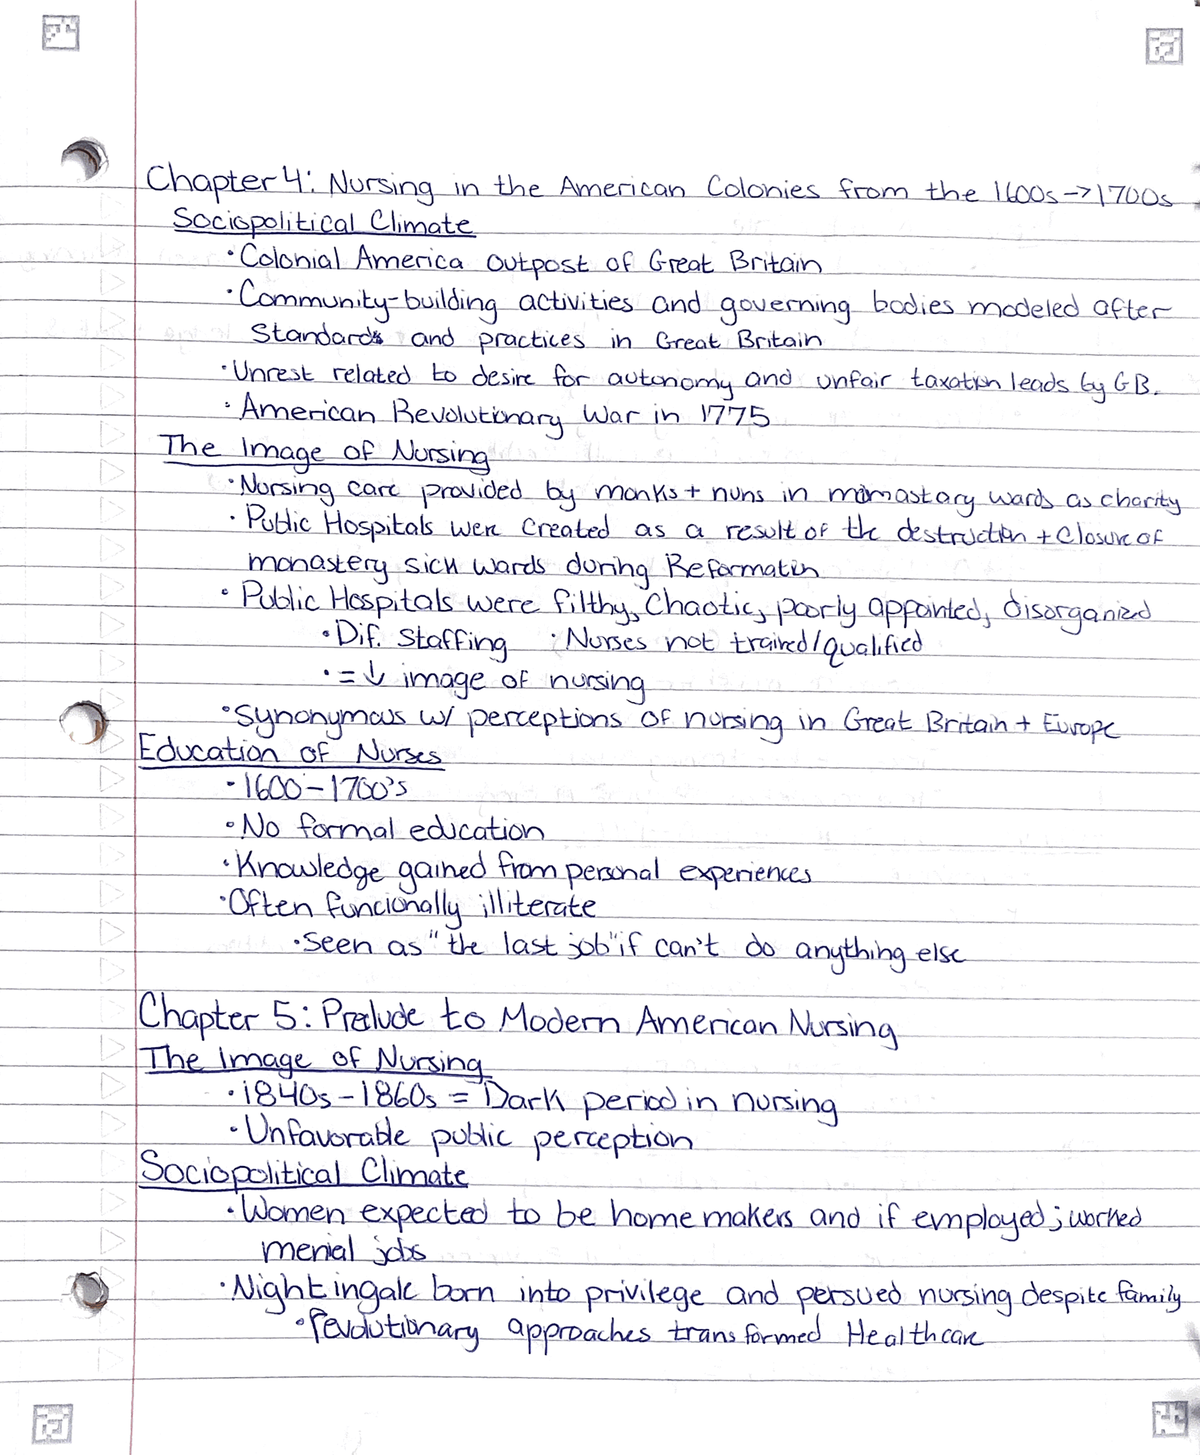 Chapter 4: Nursing in the American Colonies from the 1600s → 1700s
Sociopolitical Climate
• Colonial America outpost of Great Britain
• Community-building activities and governing bodies modeled after
Standards and practices in Great Britain
• Unrest related to desire for autonomy and unfair taxation leads by GB.
• American Revolutionary War in 1775
The Image of Nursing
• Nursing care provided by monks + nuns in monastary wards as charity
• Public Hospitals were created as a result of the destruction + closure of
monastery sick wards during Reformation
• Public Hospitals were filthy, Chaotic, poorly appointed, disorganized
• Dif. Staffing • Nurses not trained/qualified
• = ↓ image of nursing
• Synonymous w/ perceptions of nursing in Great Britain + Europe
Education of Nurses
• 1600-1700's
• No formal education
• Knowledge gained from personal experiences
• Often funcionally illiterate
• Seen as "the last job" if can't do anything else
Chapter 5: Prelude to Modern American Nursing
The Image of Nursing
• 1840s - 1860s = Dark period in nursing
• Unfavorable public perception
Sociopolitical Climate
• Women expected to be homemakers and if employed; worked
menial jobs
• Nightingale born into privilege and persued nursing despite family
• Revolutionary approaches transformed Healthcare